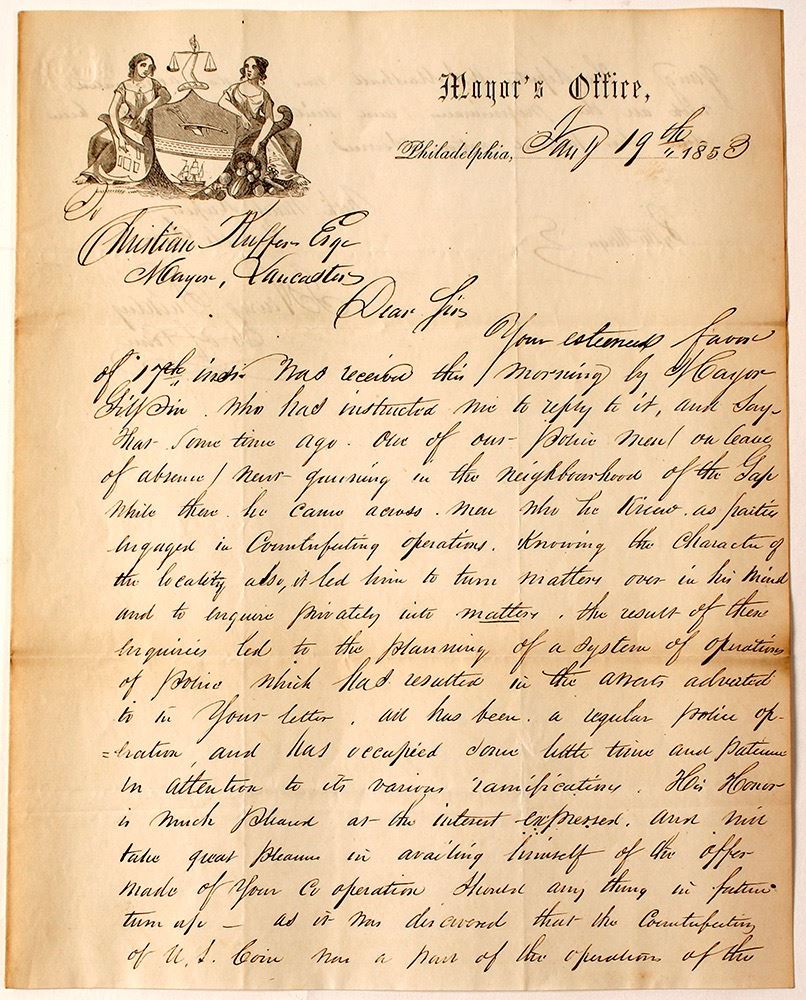 Mayor's Office,
Philadelphia, Jany 19th 1853
To
Christian Kieffer Esqr
Mayor, Lancaster
Dear Sir
Your esteemed favor
of 17th inst. was received this morning by Mayor
Gilpin. who has instructed me to reply to it, and say-
that some time ago. one of our police men (on leave
of absence) went gunning in the neighbourhood of the Gap
while there. he came across. men who he knew. as parties
engaged in Counterfeiting operations. Knowing the character of
the locality, also, it led him to turn matters over in his mind
and to enquire privately into matters. the result of these
enquiries led to the planning of a system of operations
of police which has resulted in the arrests adverted
to in your letter. all has been. a regular police op-
=eration, and has occupied some little time and patience
in attention to its various ramifications. His Honor
is much pleased at the interest expressed. and will
take great pleasure in availing himself of the offer
made of your Co operation should any thing in future
turn up – as it was discovered that the Counterfeiting
of U. S. Coin was a part of the operations of the